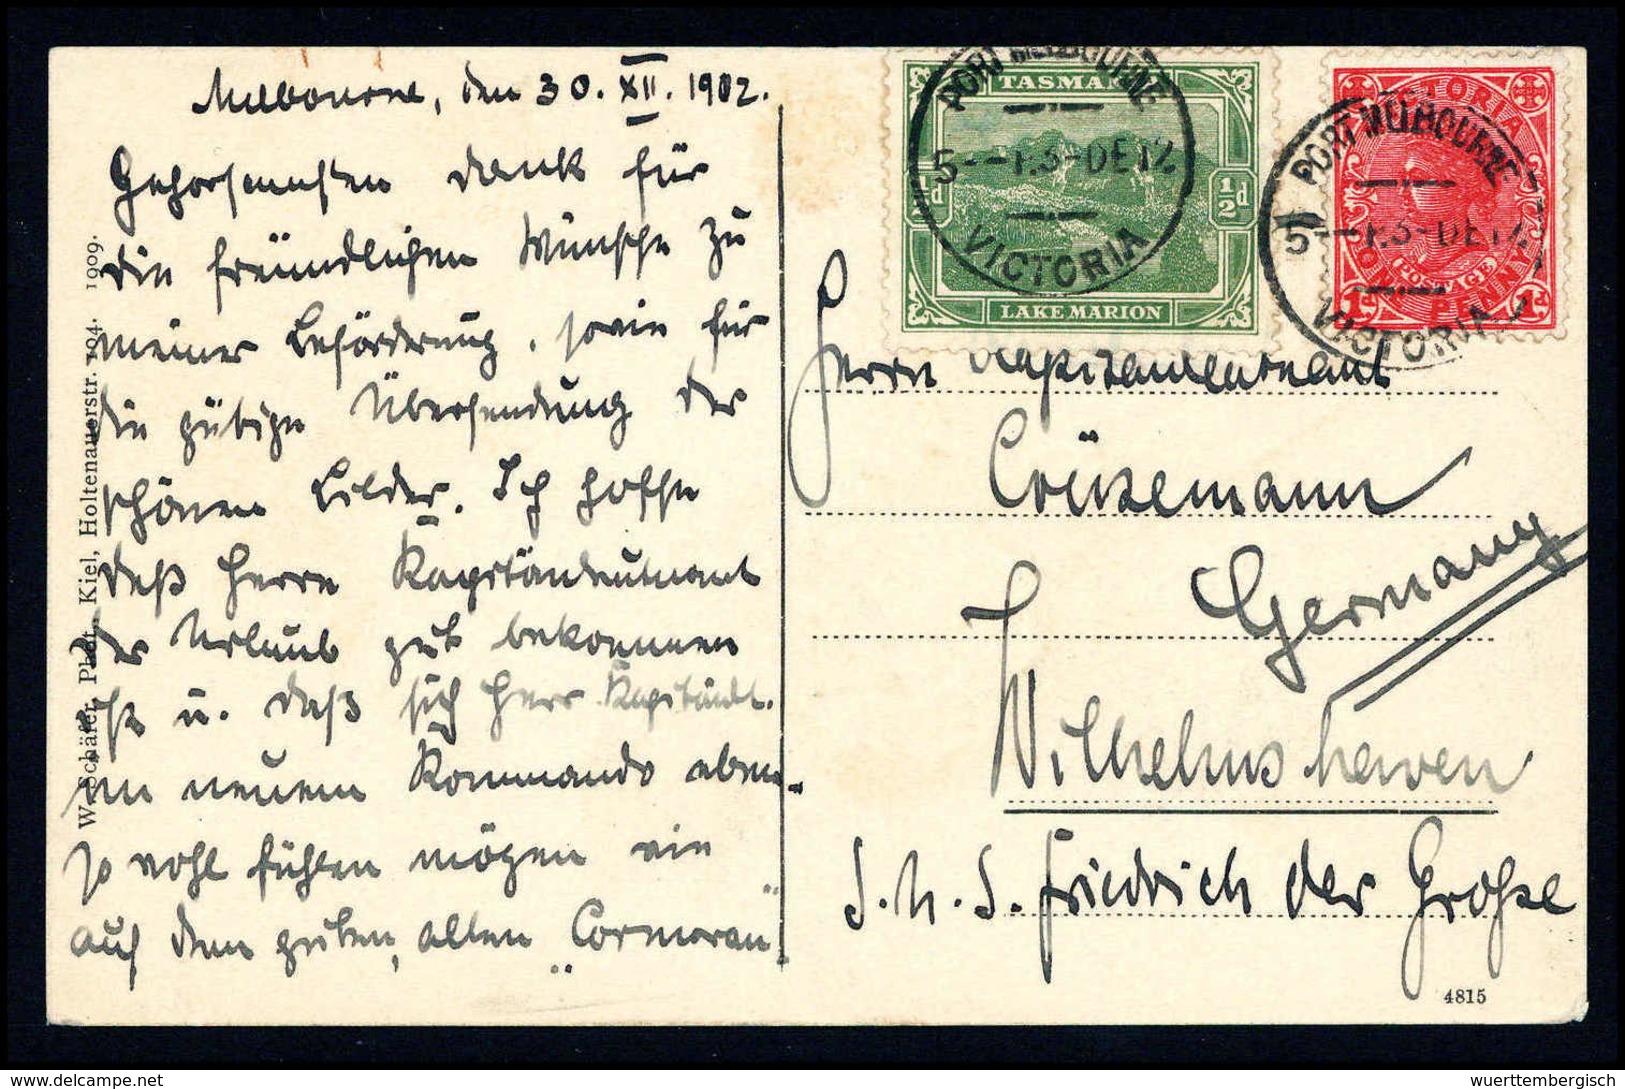 Melbourne, den 30. XII. 1912.
Gehorsamsten Dank für
die freundlichen Wünsche zu
meiner Beförderung, sowie für
die gütige Übersendung der
schönen Bilder. Ich hoffe
daß Herrn Kapitänleutnant
der Urlaub gut bekommen
ist u. daß sich Herr Kapitänlt.
im neuen Kommando eben-
so wohl fühlen mögen wie
auf dem guten, alten „Cormoran"
W. Schäfer, Phot., Kiel, Holtenauerstr. 104. 1909.
TASMANIA
½d
½d
LAKE MARION
PORT MELBOURNE
5--1.3-DE12
VICTORIA
VICTORIA
POSTAGE
ONE PENNY
1d
1d
PORT MELBOURNE
5--1.3-DE12
VICTORIA
Herrn Kapitänleutnant
Germany
Wilhelmshaven
S.M.S. Friedrich der Große
4815
wuerttembergisch